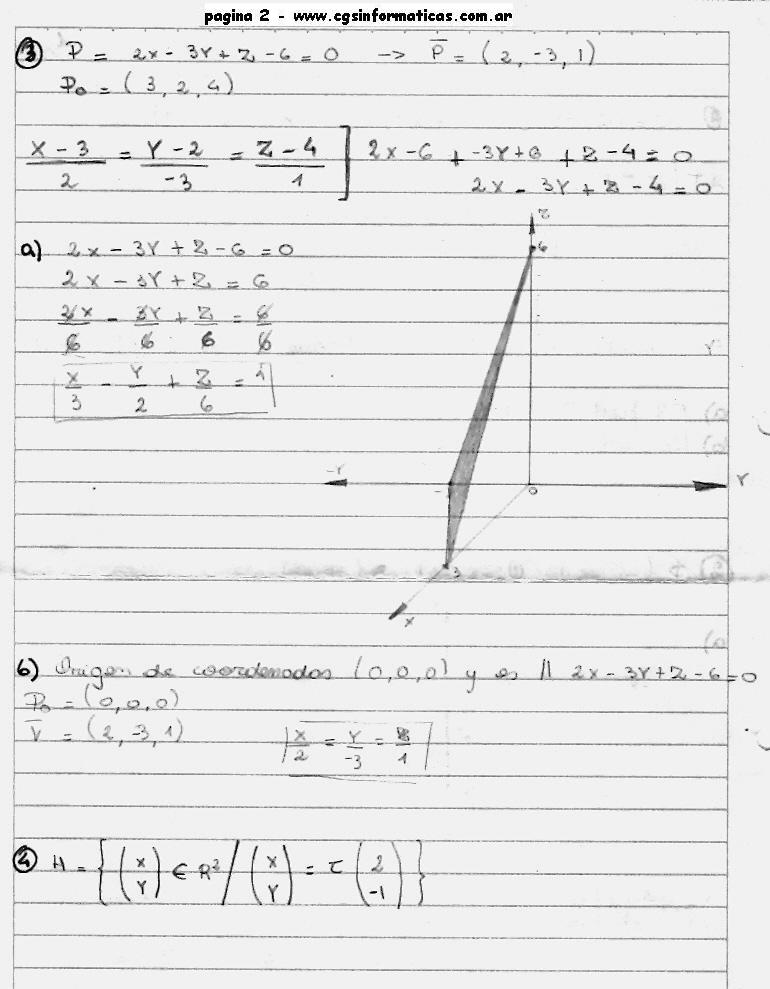 pagina 2 - www.cgsinformaticas.com.ar
③ P = 2x - 3Y + Z - 6 = 0 -> P̅ = (2, -3, 1)
P₀ = (3, 2, 4)
X - 3 / 2 = Y - 2 / -3 = Z - 4 / 1 ] 2X - 6 + -3Y + 6 + Z - 4 = 0
2X - 3Y + Z - 4 = 0
a) 2X - 3Y + Z - 6 = 0
2X - 3Y + Z = 6
2X/6 - 3Y/6 + Z/6 = 6/6
X/3 - Y/2 + Z/6 = 1
Z
6
-Y
0
Y
3
X
b) Origen de coordenadas (0,0,0) y es // 2X - 3Y + Z - 6 = 0
P₀ = (0,0,0)
V̅ = (2, -3, 1) X/2 = Y/-3 = Z/1
④ H = { (X Y) ∈ R² / (X Y) = τ (2 -1) }